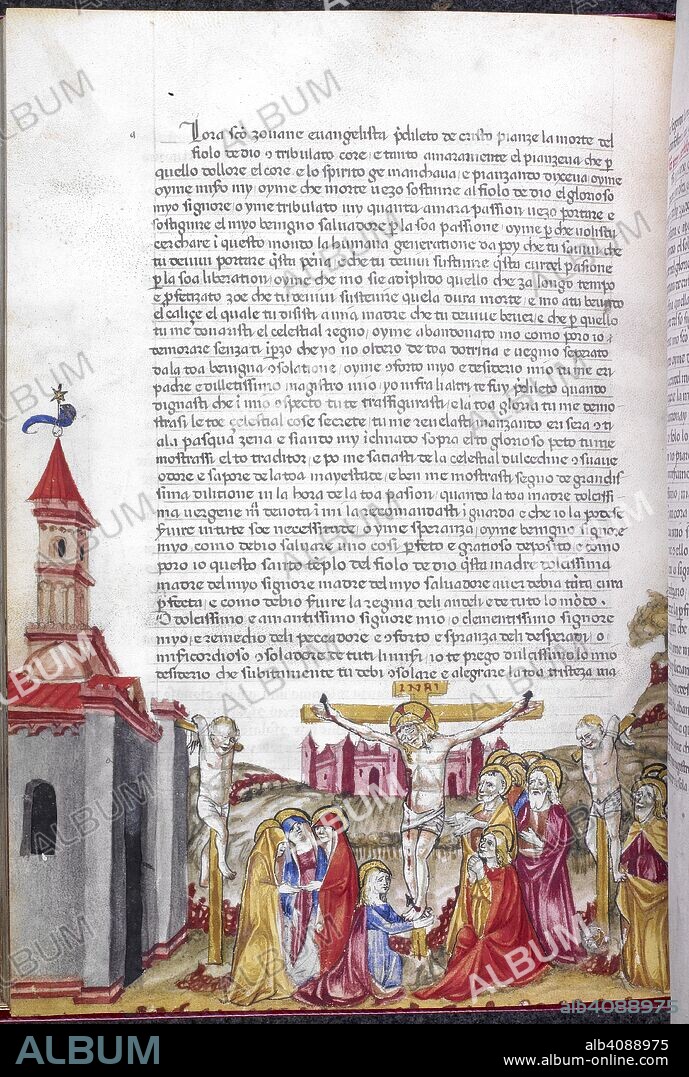 Lora sco zouane euangelista pdileto de cristo pianze la morte del
fiolo de dio 9 tribulato core, e tanto amaramente el pianzeua che p
quello dollore el core, e lo spirito ge manchaua, e pianzando dixeua, oyme
oyme misero my oyme che morte uezo sostenire al fiolo de dio el glorioso
myo signore, o yme tribulato my quanta amara passion uezo portare e
sostignire el myo benigno saluadore p la soa passione, oyme p che uolista
cerchare i questo mondo la humana generatione da poy che tu sauiui che
tu deuiui portare qsta pena, 9 che tu deuiui sustenire qsta crudel pasione
p la soa liberation, oyme che mo sie adiplido quello che za longo tempo
e pfetizato zoe che tu deuiui sustenire quela dura morte, e mo ati beuuto
el caliçe el quale tu disisti a una madre che tu deuiue beuer, e che p quello
tu me donaristi el celestial regno, oyme abandonato mo como poro io
demorare senza ti ipzo che yo no oldero de toa dotrina e uegnio seperato
da la toa benigna 9solatione, oyme 9forto myo e desiderio mio tu me eri
padre e dilletissimo magistro mio, yo infra li altri te fuy pdileto quando
dignasti che i mio 9specto tu te trasfigurasti, e la toa gloria tu me demo
strasi le toe çelestial cose secrete, tu me reuelasti manzando eri sera 9 ti
a la pasqua zena e siando my ichinado sopra el to glorioso peto tu me
mostrassi el to traditor, e po me saciasti de la celestial dulcedine 9 suaue
odore e sapore de la toa mayestade, e ben me mostrasti segno de grandis
sima dilitione in la hora de la toa passion, quando la toa madre dolcissi
ma uergene ma deuota i mi la recomandasti i guarda e che io la podese
seruire in tute soe necessitade, oyme speranza, oyme benigno signore
myo como debio saluare uno cosi pfeto e gratioso deposito, e como
poro io questo santo teplo del fiolo de dio qsta madre dolcissima
madre del myo signore madre del myo saluadore auer debia tuta cura
pfecta, e como debio seruire la regina deli anzeli e de tuto lo modo.
O dolcissimo e amantissimo signore mio, o clementissimo signore
myo, e remedio deli peccadore e 9forto e spianza deli desperadi, o
misericordioso 9soladore de tuti li miseri, io te prego dulcassimo lo mio
desiderio che subitamente tu debi 9solare e alegrare la toa tristeza ma
INRI
ALBUM
alb4088975
ALBUM
alb4088975
www.album-online.com